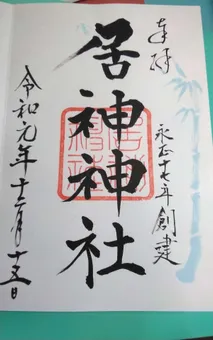 奉拝
永正十七年創建
居神神社
令和元年十二月十五日